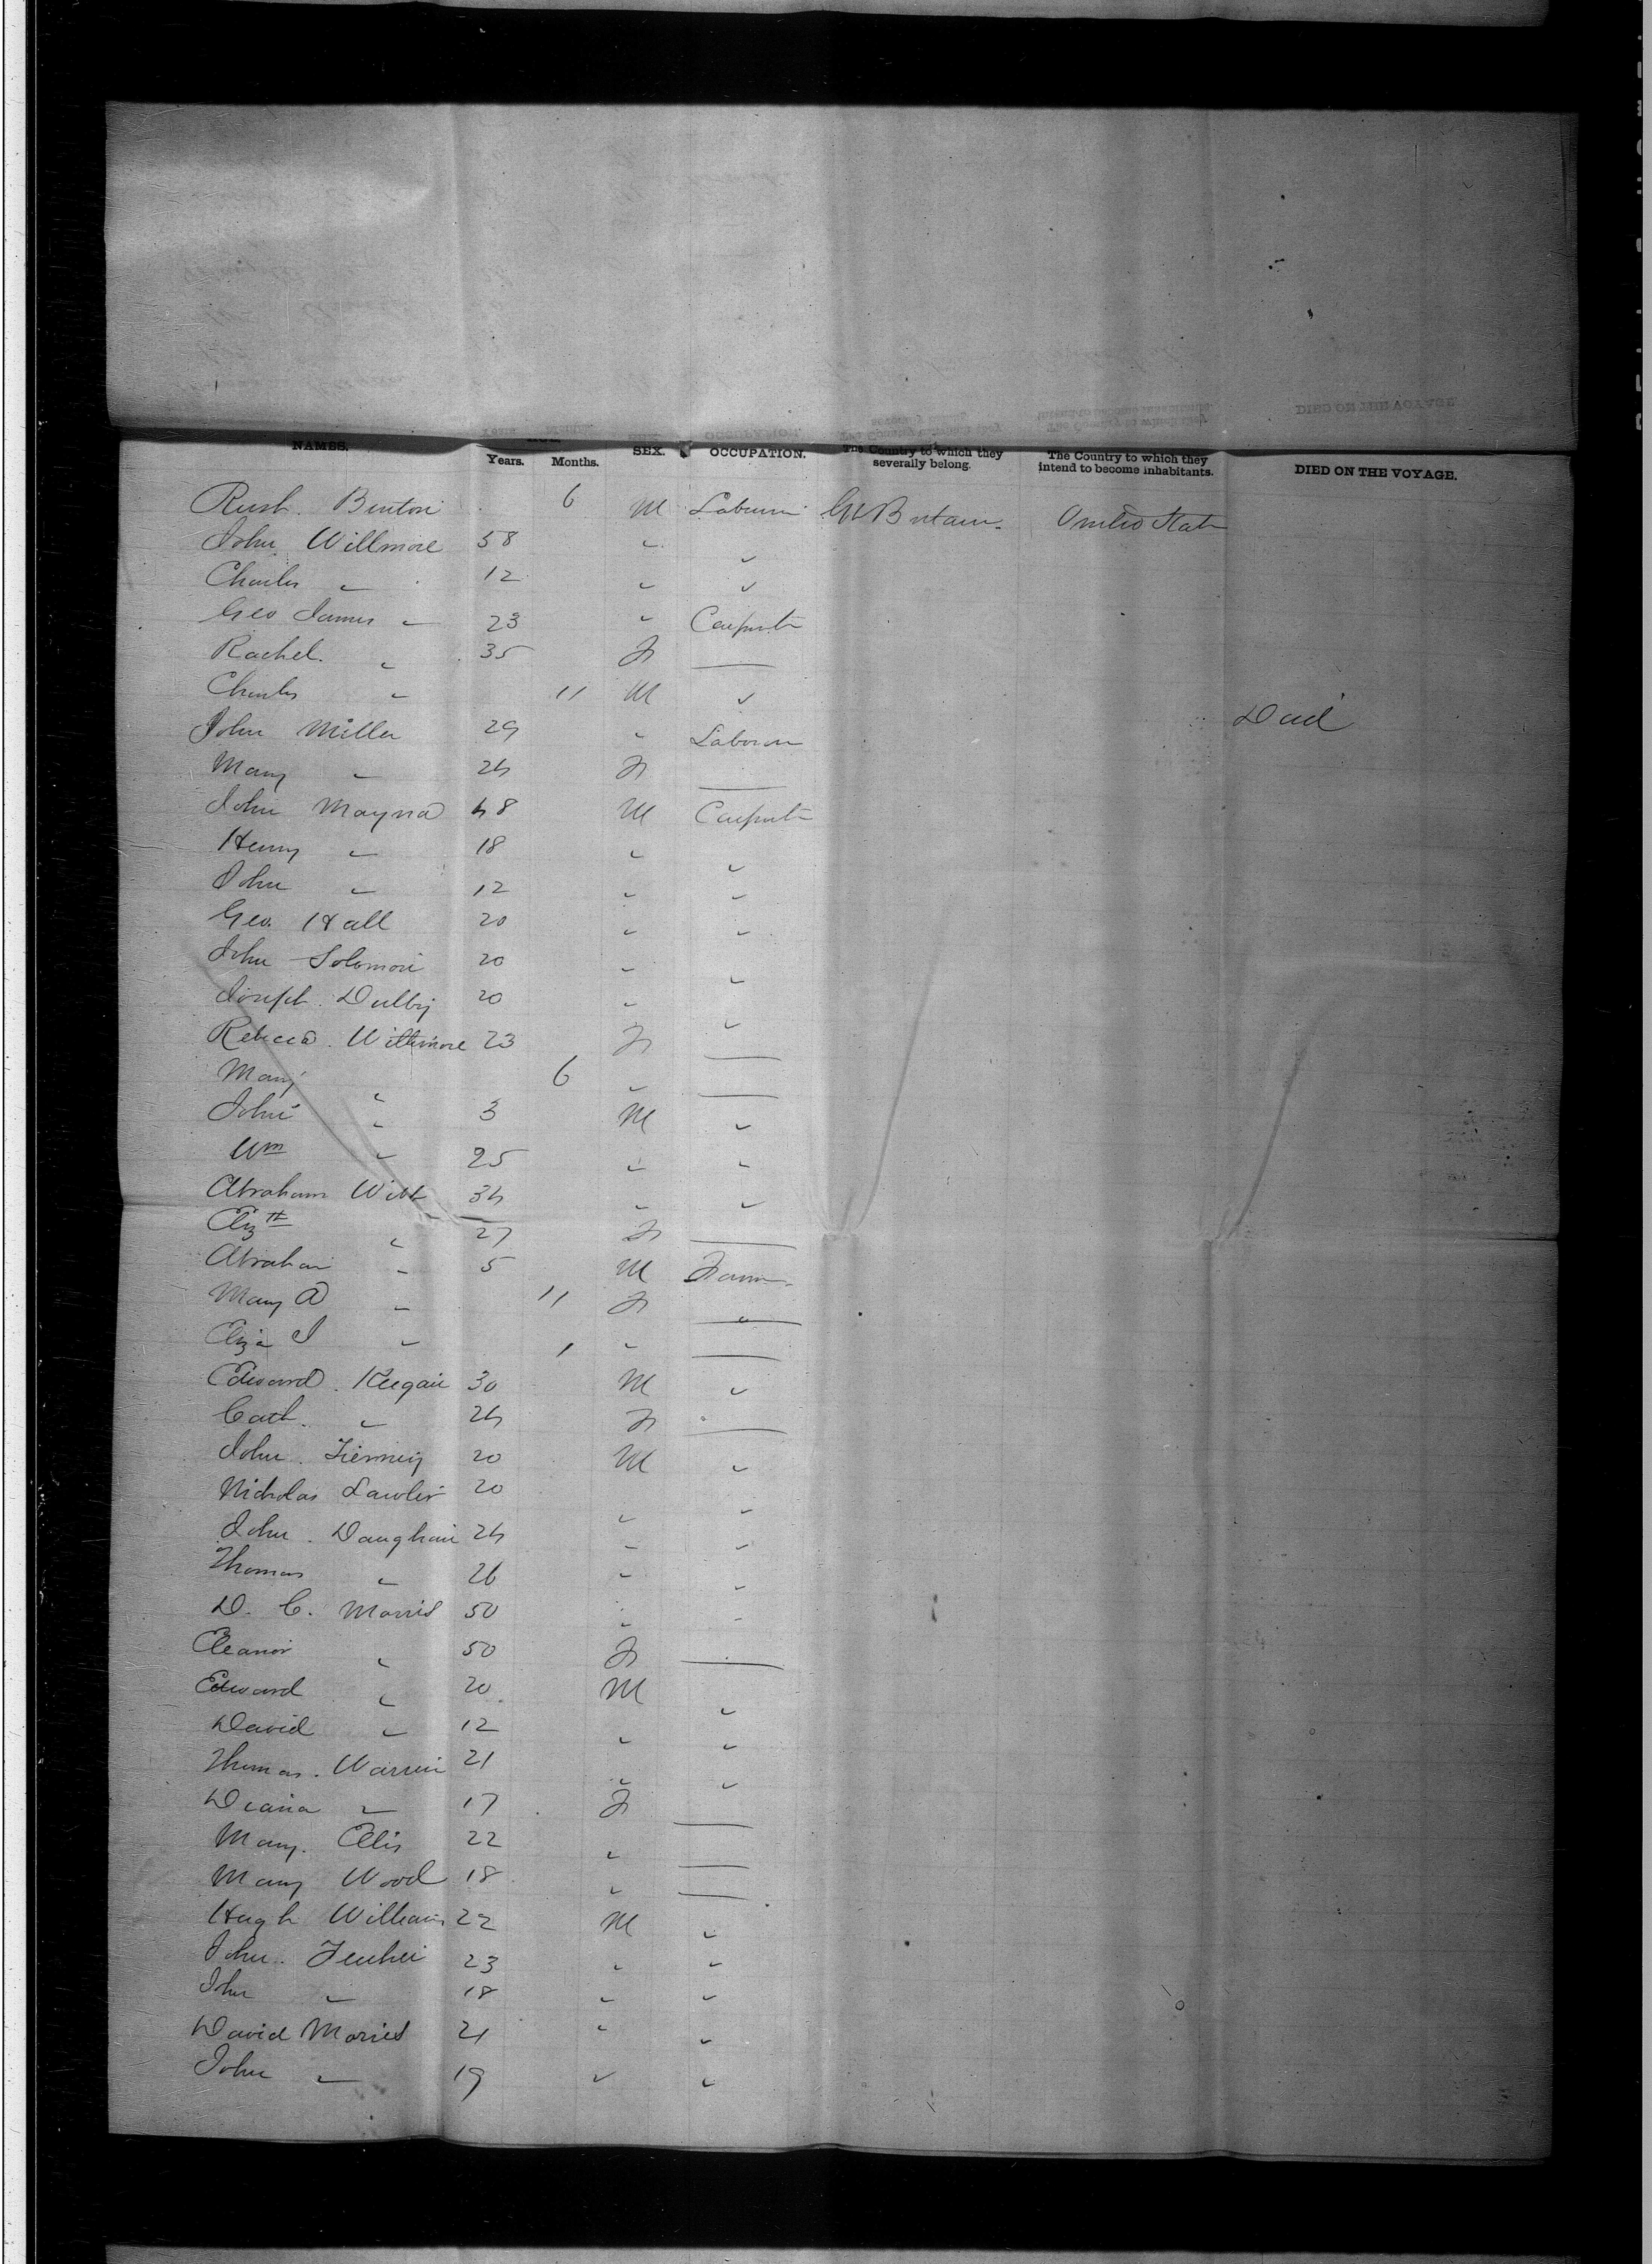 NAMES. Years. Months. SEX. OCCUPATION. The Country to which they severally belong. The Country to which they intend to become inhabitants. DIED ON THE VOYAGE.
Benton 6 M Gt Britain United
John Willmore 58 "
Charles " 12 " "
Geo James " 23 "
Rachel " 35 F —
Charles " 11 M "
John Miller 29 " Died
Mary " 24 F —
John 48 M
Henry " 18 " "
John " 12 " "
Geo. Hall 20 " "
John Solomon 20 " "
Joseph 20 " "
Rebecca Willmore 23 F —
Mary " 6 " —
John " 3 M "
Wm " 25 " "
Abraham 34 " "
Elizth " 27 F —
Abraham " 5 M
Mary A " 11 F —
Eliza J " 1 " —
Edward Keegan 30 M "
Cath. " 24 F —
John Tierney 20 M "
Nicholas Lawler 20 " "
John 24 " "
Thomas " 26 " "
D. C. Morris 50 " "
Eleanor " 50 F —
Edward " 20 M "
David " 12 " "
Thomas Warren 21 " "
Diana " 17 F —
Mary Ellis 22 " —
Mary Wood 18 " —
Hugh Williams 22 M "
John 23 " "
John " 18 " "
David Morris 21 " "
John " 19 " "